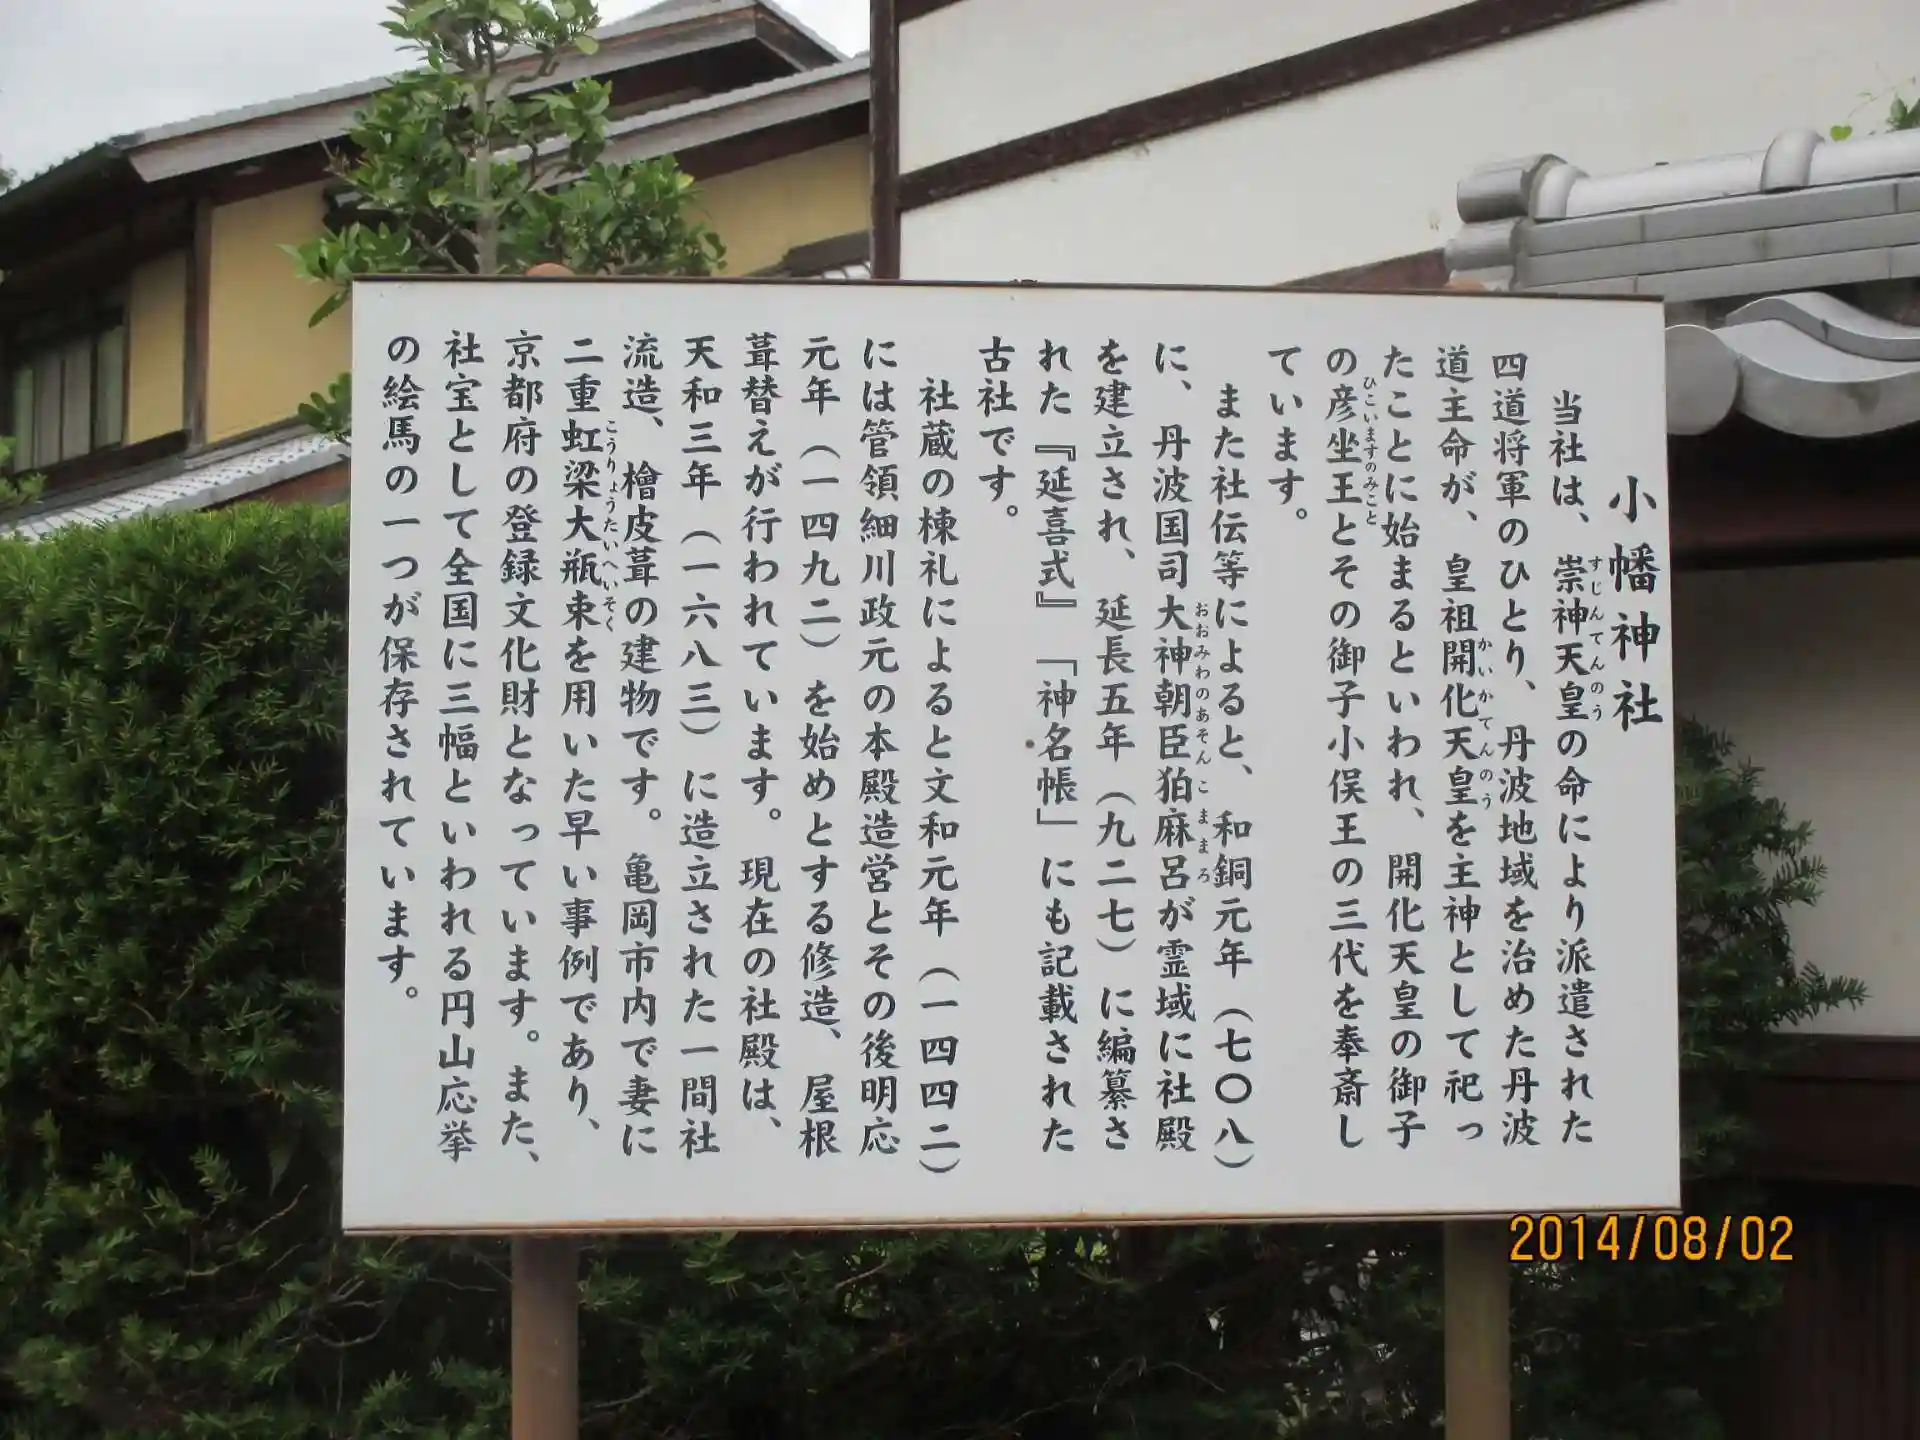 小幡神社
当社は、崇神天皇の命により派遣された
すじんてんのう
四道将軍のひとり、丹波地域を治めた丹波
道主命が、皇祖開化天皇を主神として祀っ
かいかてんのう
たことに始まるといわれ、開化天皇の御子
の彦坐王とその御子小俣王の三代を奉斎し
ひこいますのみこと
ています。
また社伝等によると、和銅元年（七〇八）
に、丹波国司大神朝臣狛麻呂が霊域に社殿
おおみわのあそんこままろ
を建立され、延長五年（九二七）に編纂さ
れた『延喜式』「神名帳」にも記載された
古社です。
社蔵の棟礼によると文和元年（一四四二）
には管領細川政元の本殿造営とその後明応
元年（一四九二）を始めとする修造、屋根
葺替えが行われています。現在の社殿は、
天和三年（一六八三）に造立された一間社
流造、檜皮葺の建物です。亀岡市内で妻に
二重虹梁大瓶束を用いた早い事例であり、
こうりょうたいへいそく
京都府の登録文化財となっています。また、
社宝として全国に三幅といわれる円山応挙
の絵馬の一つが保存されています。
2014/08/02